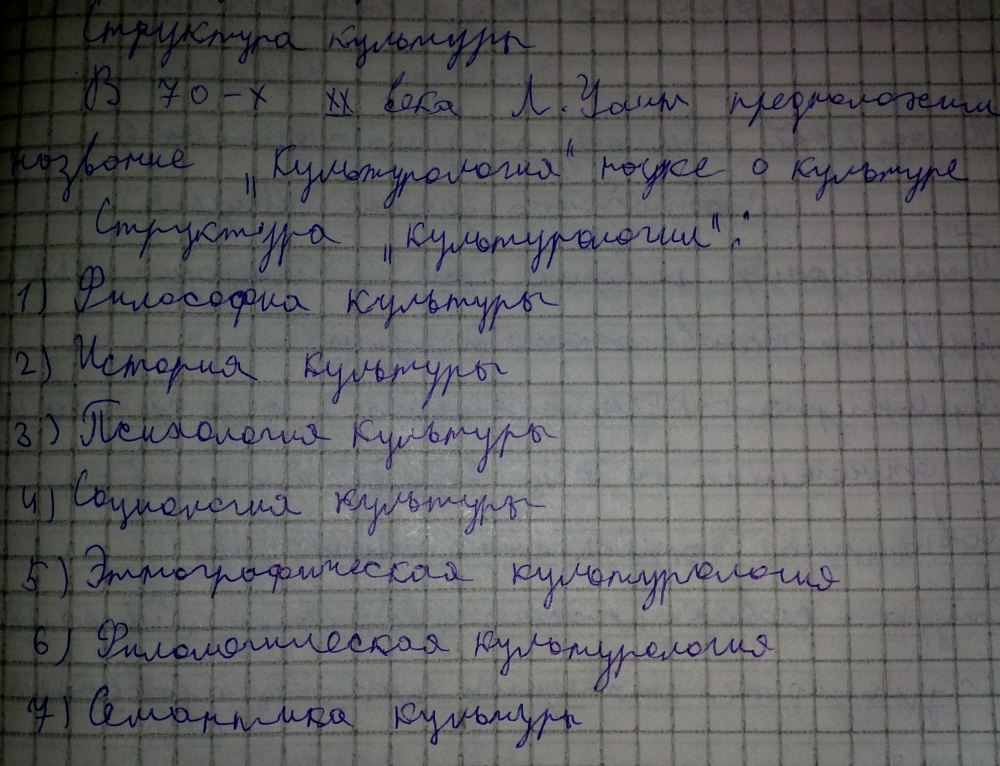 Структура культуры
В 70-х XX века Л. Уайт предположил
название „Культурология" науке о культуре
Структура „культурологии":
1) Философия культуры
2) История культуры
3) Психология культуры
4) Социология культуры
5) Этнографическая культурология
6) Филологическая культурология
7) Семантика культуры